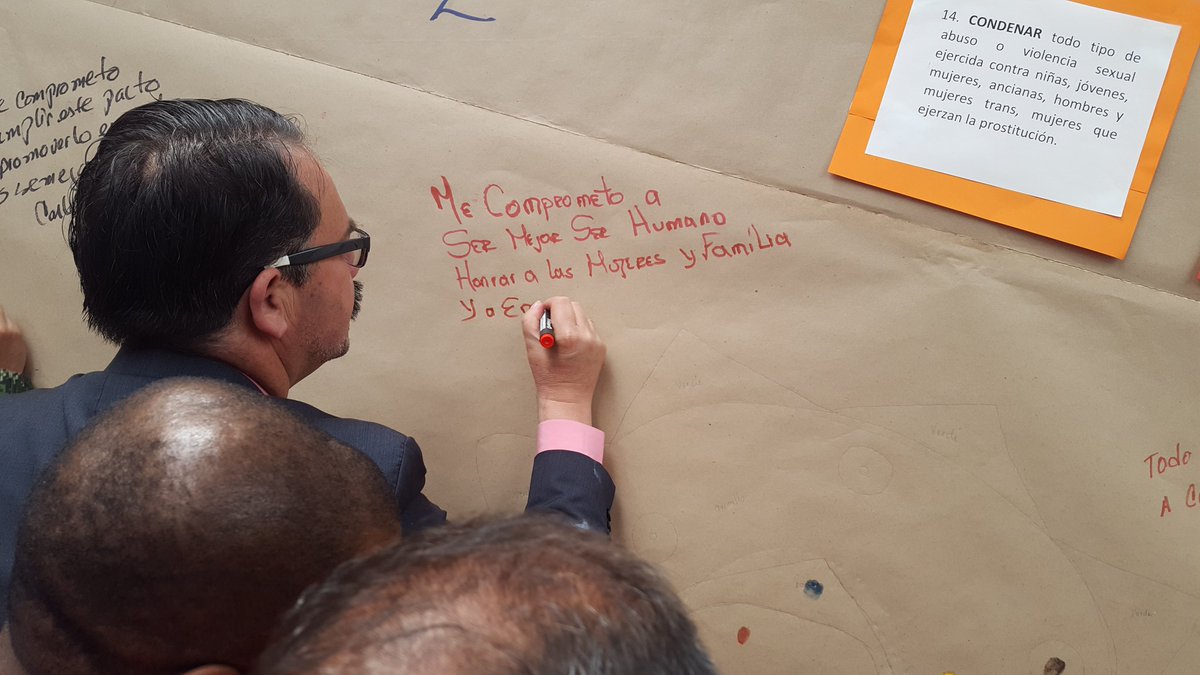 14. CONDENAR todo tipo de
abuso o violencia sexual
ejercida contra niñas, jóvenes,
mujeres, ancianas, hombres y
mujeres trans, mujeres que
ejerzan la prostitución.
comprometo
este pacto,
promoverlo
Me Comprometo a
Ser Mejor Ser Humano
Honrar a las Mujeres y Familia
y a
Todo
A